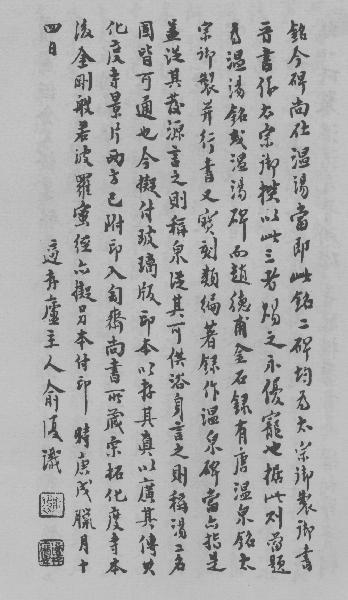 銘今碑尚在溫湯當即此銘二碑均為太宗御製御書
晉書作太宗御撰以此三者賜之示優寵也據此則當題
為溫湯銘或溫湯碑而趙德甫金石錄有唐溫泉銘太
宗御製并行書又寶刻類編著錄作溫泉碑當亦指是
並從其發源言之則稱泉從其可供浴身言之則稱湯二名
固皆可通也今擬付玻璃版印本以存其真以廣其傳其
化度寺景片兩方已附印入匋齋尚書所藏宋拓化度寺本
後金剛般若波羅蜜經亦擬另本付印 時庚戌臘月十
四日
蘧盧主人俞復識